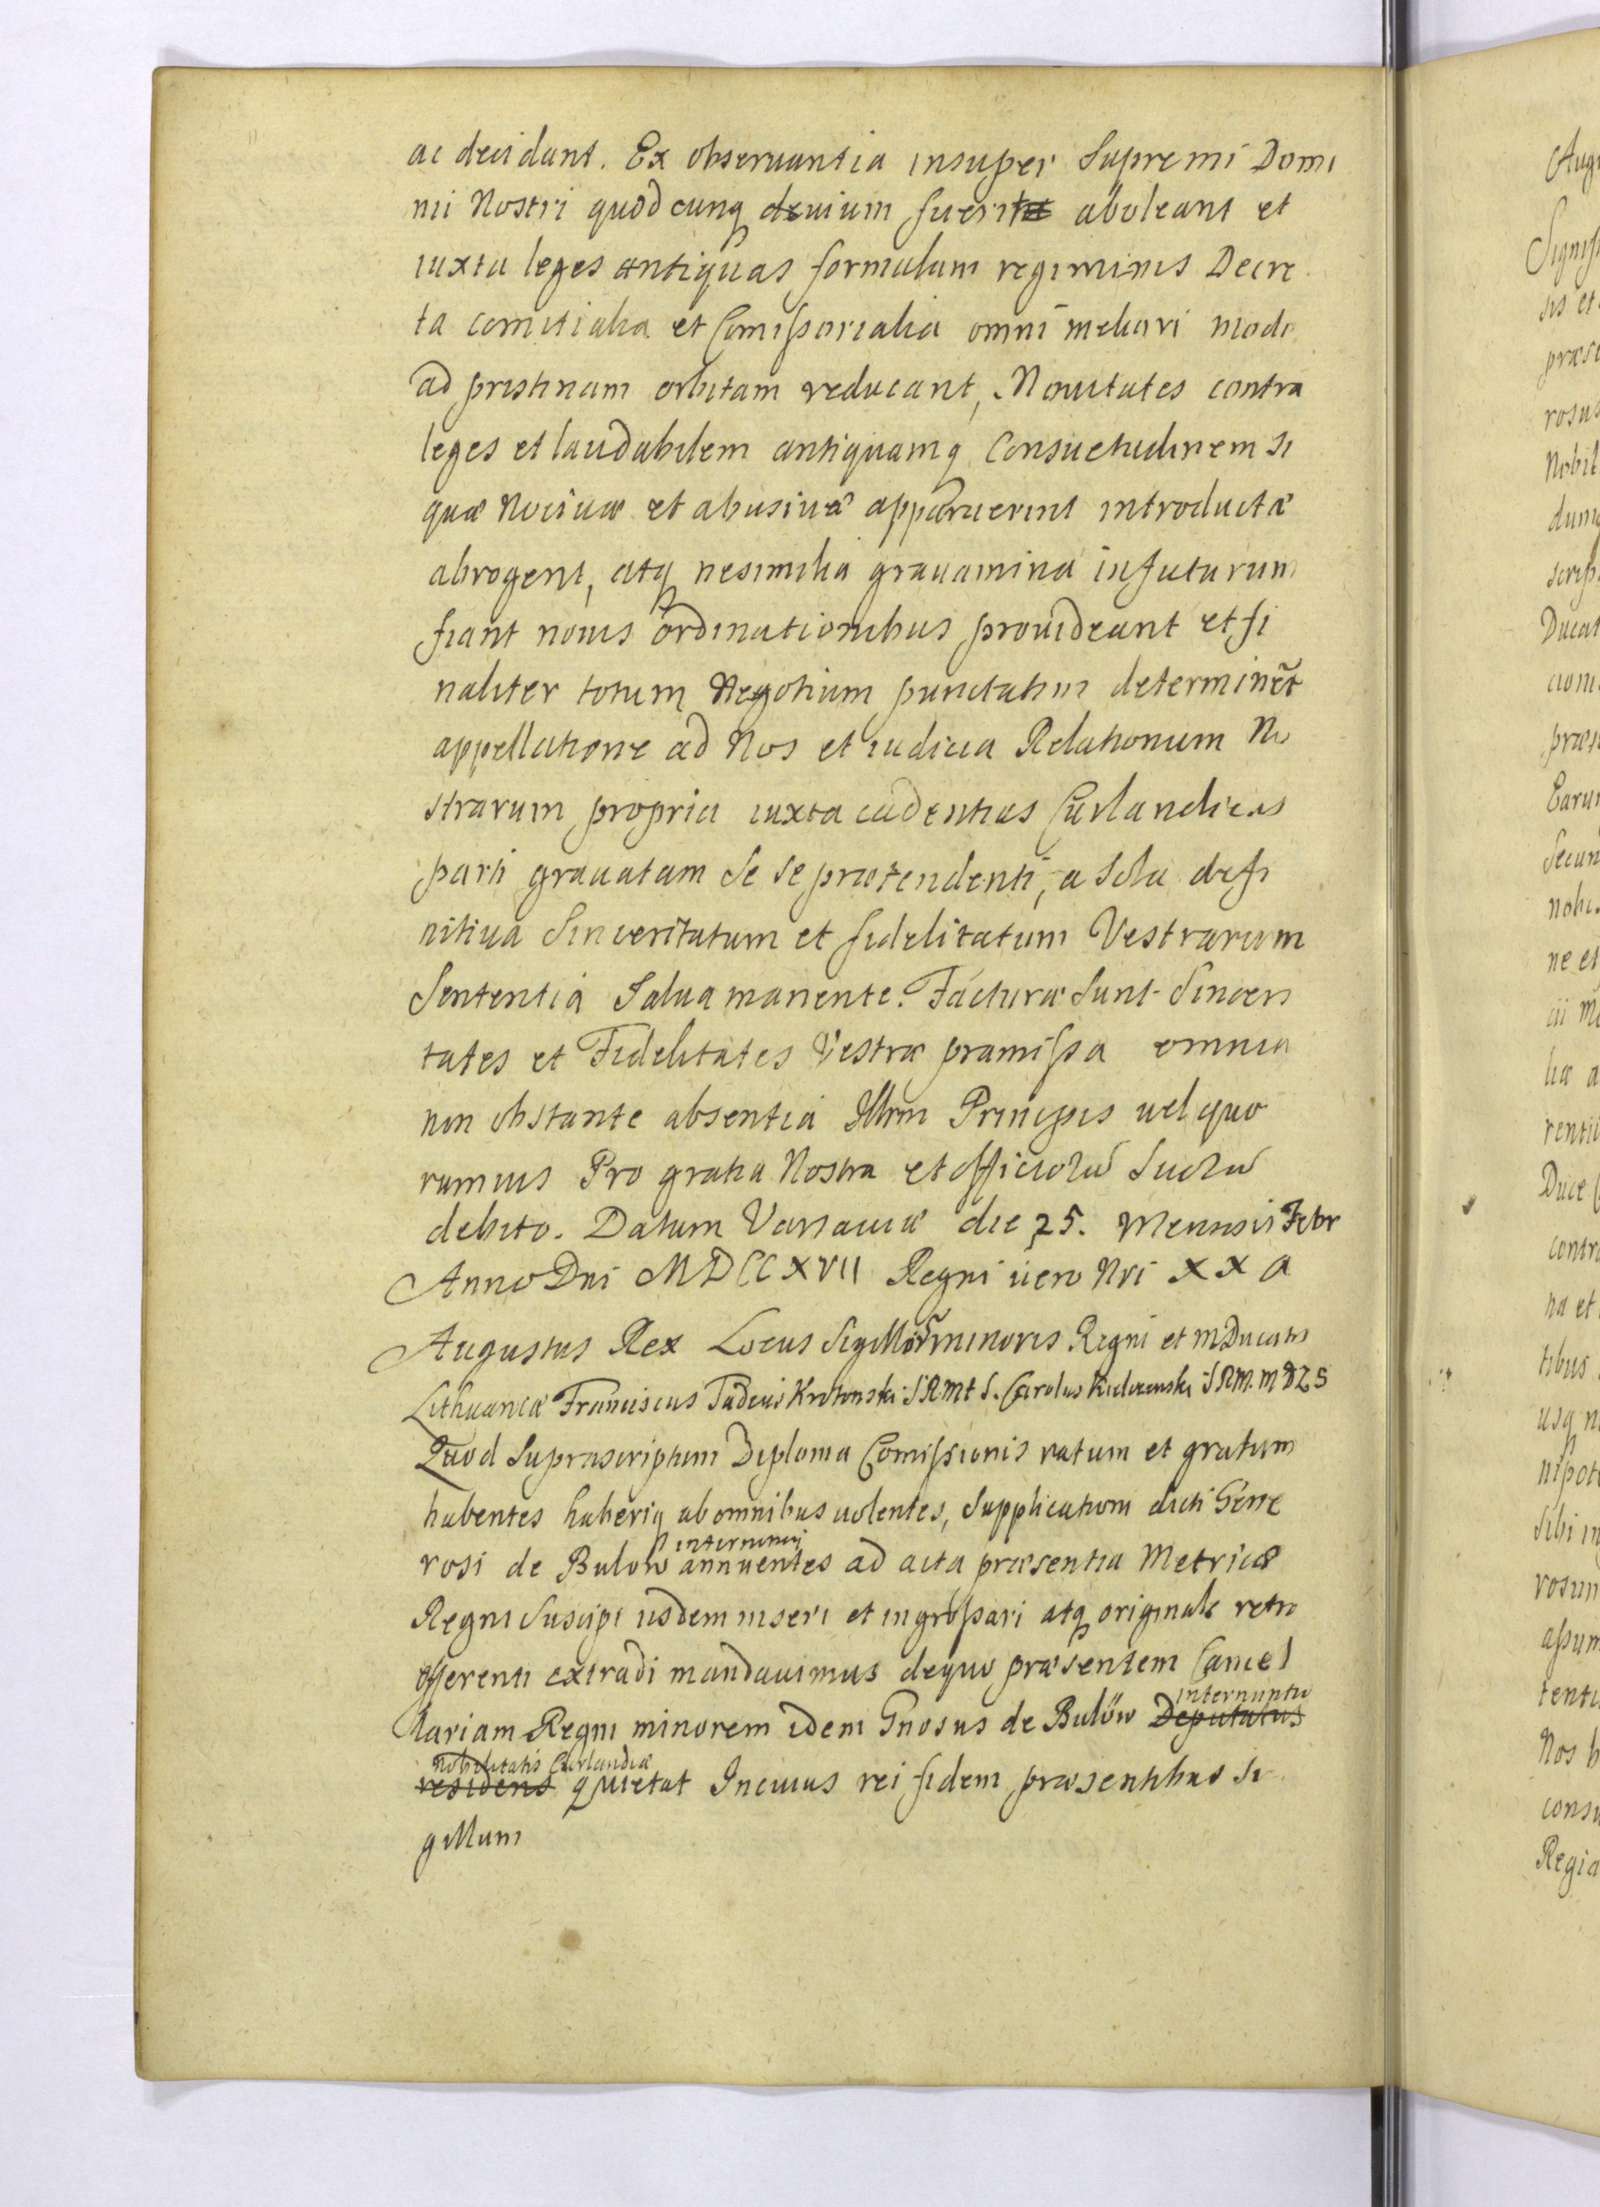 ac decidant. Ex obseruantia insuper Supremi Domi
nii Nostri quodcunq deuium fuerit aboleant et
iuxta leges antiquas formulam regiminis Decre
ta comitialia et Comissorialia omni meliori modo
ad pristinam orbitam reducant, Nouitates contra
leges et laudabilem antiquamq Consuetudinem si
quæ Nociuæ et abusiuæ apparuerint introductæ
abrogent, atq ne similia grauamina in futurum
fiant nouis ordinationibus prouideant et fi
naliter totum Negotium punctatim determinēt
appellatione ad Nos et iudicia Relationum No
strarum propria iuxta cadentias Curlandicas
parti grauatam se se prætendenti, a sola defi
nitiua Sinceritatum et fidelitatum Vestrarum
Sententia Salua manente. Facturæ sunt Sinceri
tates et Fidelitates Vestræ præmissa omnia
non obstante absentia Illrm Principis uel quo
rumuis Pro gratia Nostra et officiorū suorū
debito. Datum Varsauiæ die 25. Mensis Febr
Anno Dni MDCCXVII Regni uero Nri XX A
Augustus Rex Locus Sigillorū minoris Regni et M Ducatus
Lithuaniæ Franciscus Tadeus Krotonski SRMt S. Carolus SRM. MDLS
Quod Suprascriptum Diploma Comissionis ratum et gratum
habentes haberiq ab omnibus uolentes, Supplicationi dicti Gene
rosi de Bulow internuncii annuentes ad acta præsentia Metricæ
Regni Suscipi iisdem inseri et ingrossari atq originale retro
offerenti extradi mandauimus de quo præsentem Cancel
lariam Regni minorem idem Gnosus de Bulöw internuntiu Deputatus
Nobilitatis Curlandiæ residens quietat In cuius rei fidem præsentibus Si
gillum